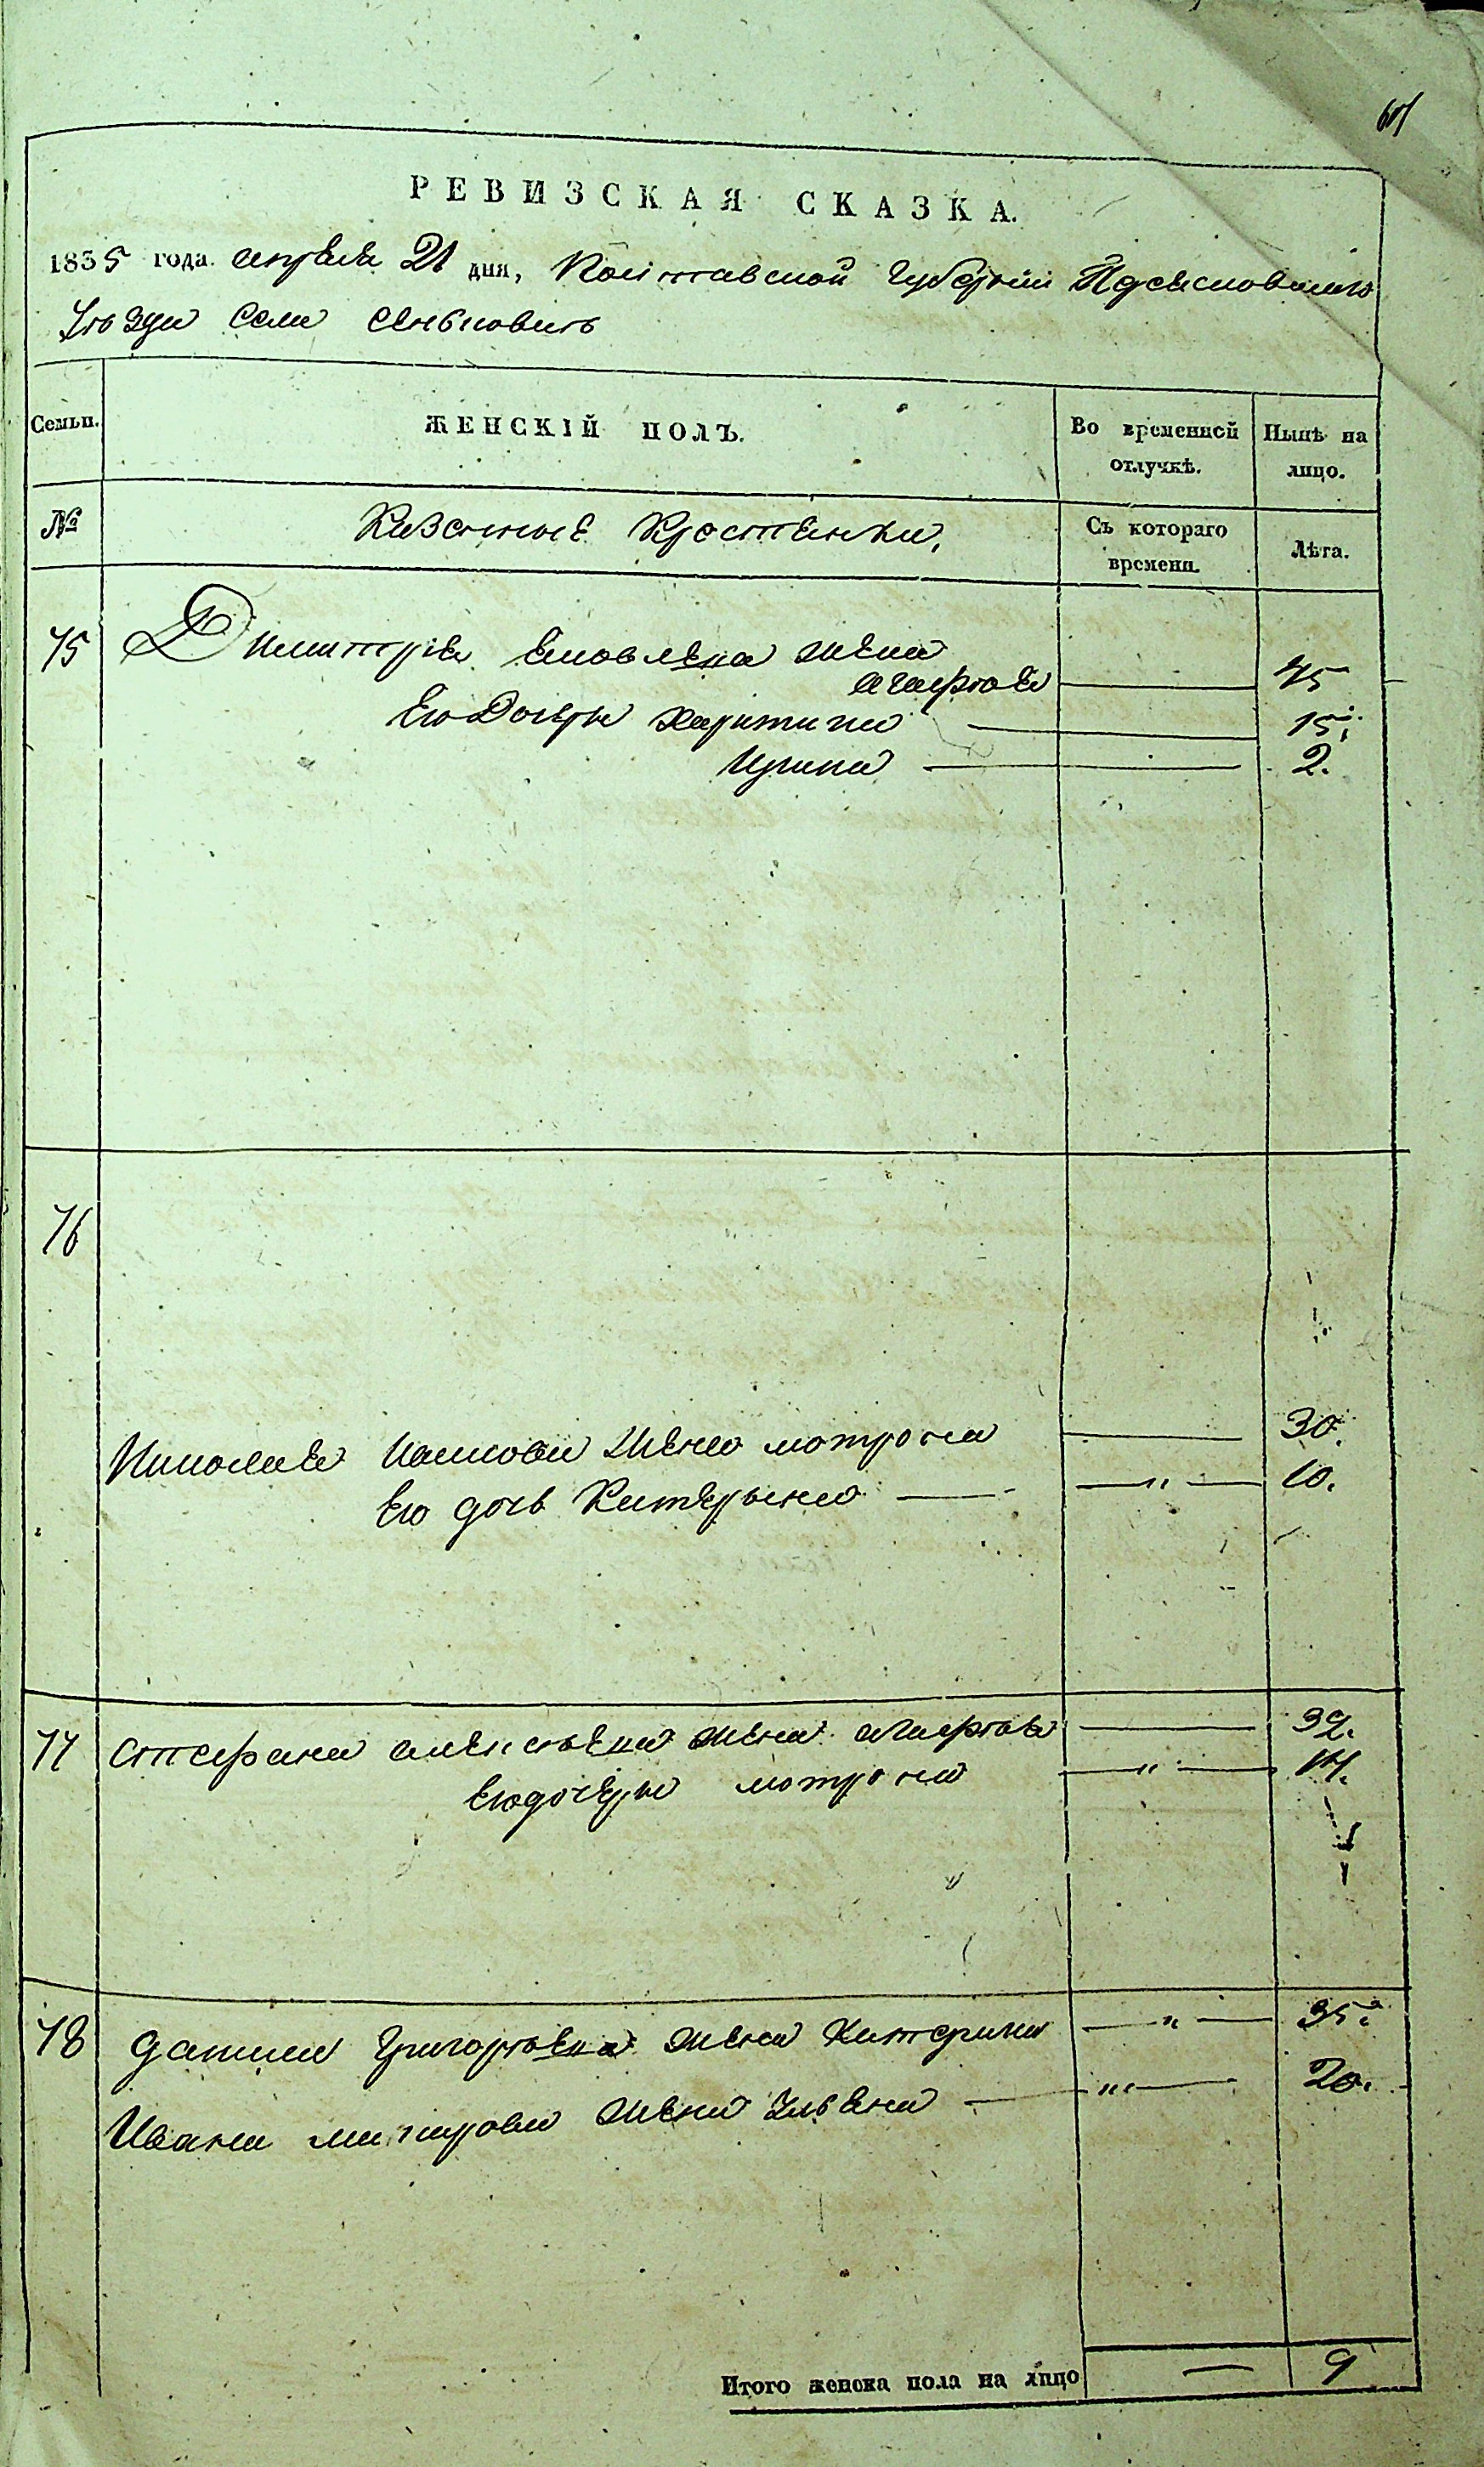 РЕВИЗСКАЯ СКАЗКА.
1835 года апреля 21 дня, Полтавской Губернии Переясловского
Уезда Села Сеньковичъ
Семьи.
ЖЕНСКІЙ ПОЛЪ.
Во временной отлучкѣ.
Нынѣ на лицо.
№
Казенные Крестьянки,
Съ котораго времени.
Лѣта.
75 Димитрія Яковлева жена
Агафія 45
Его Дочери Харитина 15
Ирина 2.
76
Николая жена мотрона 30.
Его дочь Катерына 10.
77 Стефана Алексеева жена Агафія 32.
Его дочери мотрона 14.
78 Данила Григорьева жена Катерина 35.
Ивана жена Ульяна 20.
Итого женска пола на лицо — 9